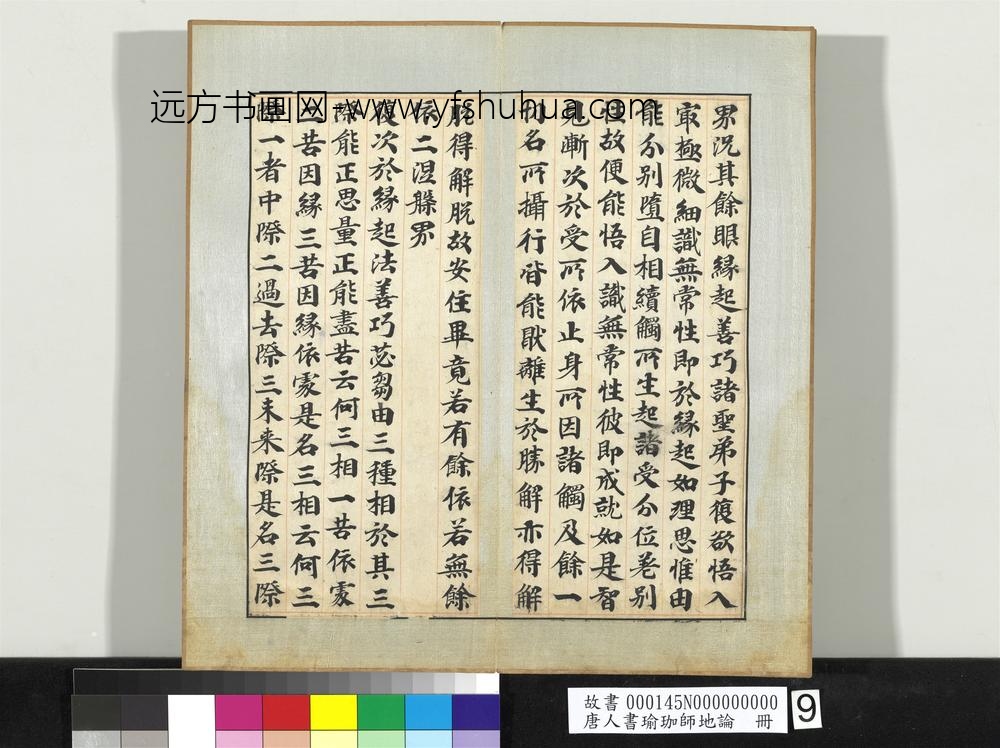 远方书画网-www.yfshuhua.com
界況其餘眼縁起善巧諸聖弟子復欲悟入
冣極微細識無常性即於縁起如理思惟由
能分別墮自相續觸所生起諸受分位差別
故便能悟入識無常性彼即成就如是智
見漸次於受所依止身所因諸觸及餘一
切名所攝行皆能猒離生於勝解亦得解
脫得解脱故安住畢竟若有餘依若無餘
依二涅槃界
復次於縁起法善巧苾芻由三種相於其三
際能正思量正能盡苦云何三相一苦依處
二苦因縁三苦因縁依處是名三相云何三
際一者中際二過去際三未来際是名三際
故書 000145N000000000
唐人書瑜珈師地論 冊
9